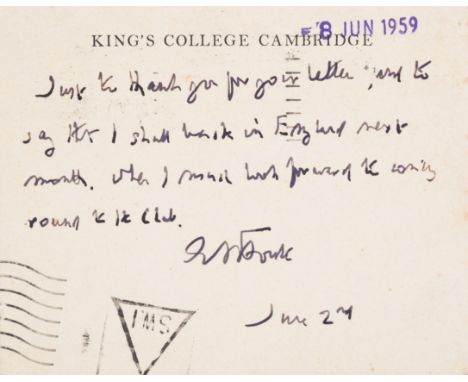 8 JUN 1959
KING'S COLLEGE CAMBRIDGE
Just to thank you for your letter, and to
say that I shall back in England next
month, when I much look forward to coming
round to the Club.
June 2nd